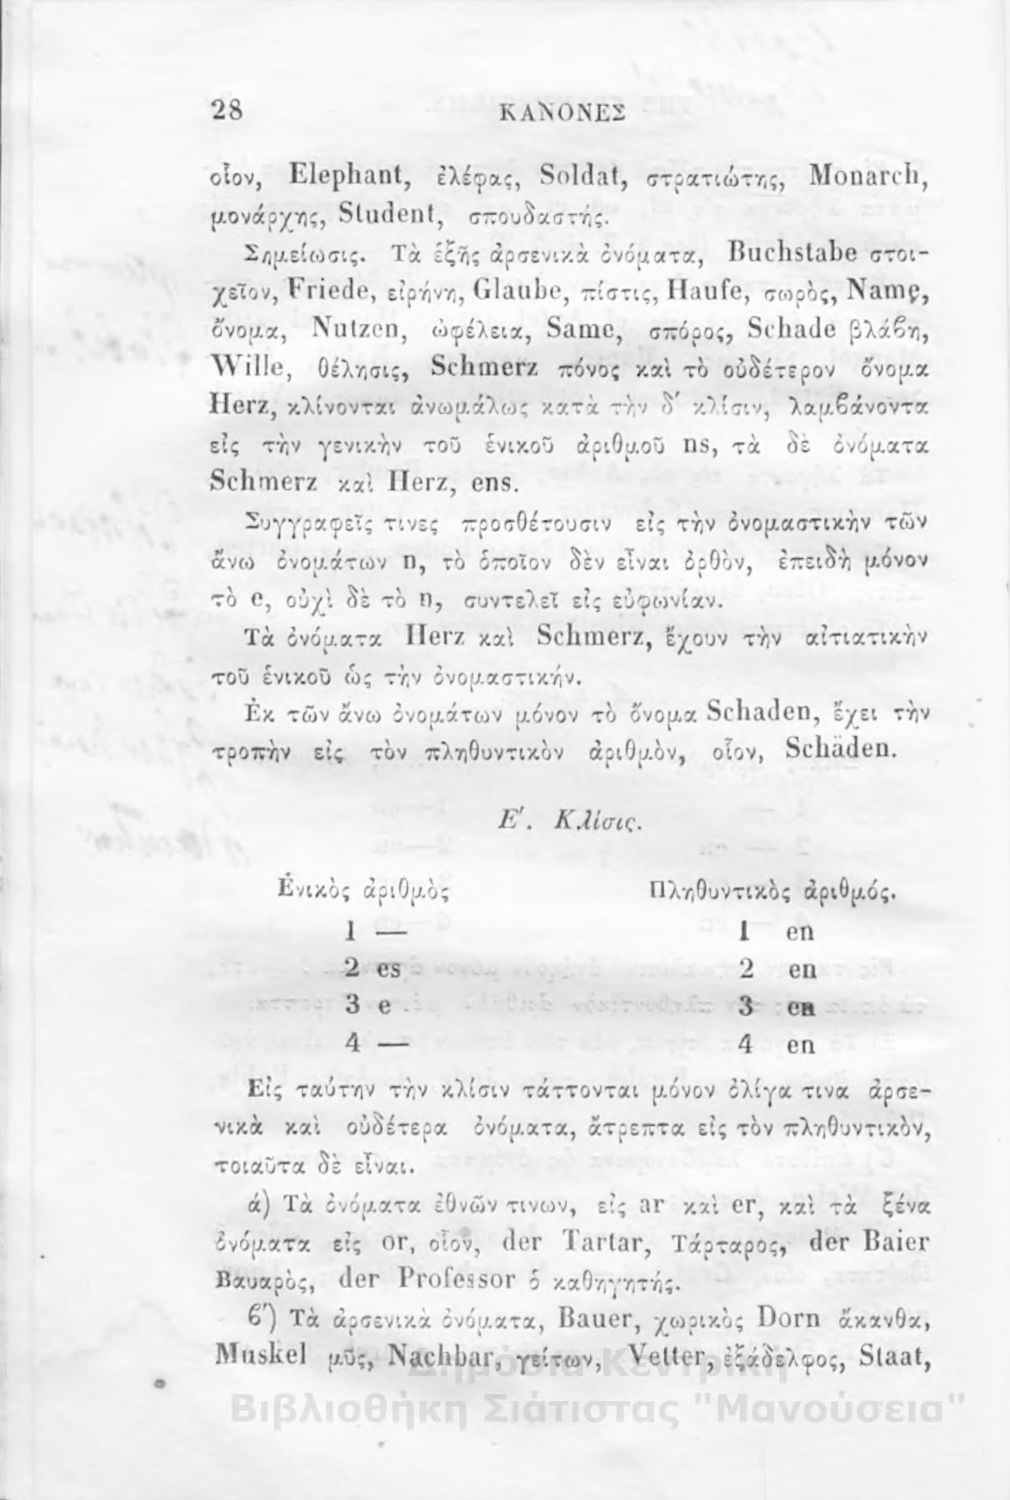 28 ΚΑΝΟΝΕΣ
οἷον, Elephant, ἐλέφας, Soldat, στρατιώτης, Monarch,
μονάρχης, Student, σπουδαστής.
Σημείωσις. Τὰ ἑξῆς ἀρσενικὰ ὀνόματα, Buchstabe στοι-
χεῖον, Friede, εἰρήνη, Glaube, πίστις, Haufe, σωρὸς, Name,
ὄνομα, Nutzen, ὠφέλεια, Same, σπόρος, Schade βλάβη,
Wille, θέλησις, Schmerz πόνος καὶ τὸ οὐδέτερον ὄνομα
Herz, κλίνονται ἀνωμάλως κατὰ τὴν δ' κλίσιν, λαμβάνοντα
εἰς τὴν γενικὴν τοῦ ἑνικοῦ ἀριθμοῦ ns, τὰ δὲ ὀνόματα
Schmerz καὶ Herz, ens.
Συγγραφεῖς τινες προσθέτουσιν εἰς τὴν ὀνομαστικὴν τῶν
ἄνω ὀνομάτων n, τὸ ὁποῖον δὲν εἶναι ὀρθὸν, ἐπειδὴ μόνον
τὸ e, οὐχὶ δὲ τὸ n, συντελεῖ εἰς εὐφωνίαν.
Τὰ ὀνόματα Herz καὶ Schmerz, ἔχουν τὴν αἰτιατικὴν
τοῦ ἑνικοῦ ὡς τὴν ὀνομαστικήν.
Ἐκ τῶν ἄνω ὀνομάτων μόνον τὸ ὄνομα Schaden, ἔχει τὴν
τροπὴν εἰς τὸν πληθυντικὸν ἀριθμὸν, οἷον, Schäden.
Ε'. Κλίσις.
Ἑνικὸς ἀριθμὸς Πληθυντικὸς ἀριθμός.
1 — 1 en
2 es 2 en
3 e 3 en
4 — 4 en
Εἰς ταύτην τὴν κλίσιν τάττονται μόνον ὀλίγα τινα ἀρσε-
νικὰ καὶ οὐδέτερα ὀνόματα, ἄτρεπτα εἰς τὸν πληθυντικὸν,
τοιαῦτα δὲ εἶναι.
ά) Τὰ ὀνόματα ἐθνῶν τινων, εἰς ar καὶ er, καὶ τὰ ξένα
ὀνόματα εἰς or, οἷον, der Tartar, Τάρταρος, der Baier
Βαυαρὸς, der Professor ὁ καθηγητής.
β') Τὰ ἀρσενικὰ ὀνόματα, Bauer, χωρικὸς Dorn ἄκανθα,
Muskel μῦς, Nachbar, γείτων, Vetter, ἐξάδελφος, Staat,
Δημόσια Κεντρική
Βιβλιοθήκη Σιάτιστας "Μανούσεια"